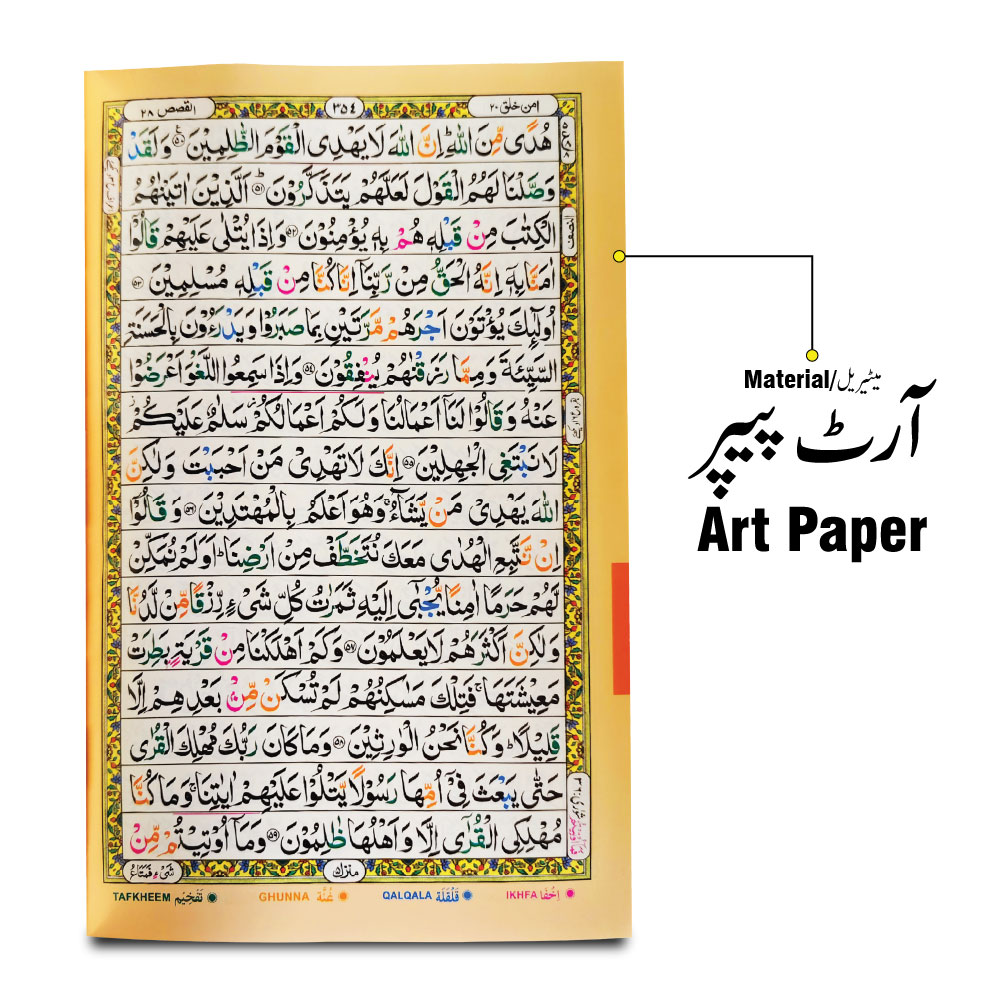 امن خلق ٢٠
٣٥٤
القصص ٢٨
هُدًى مِّنَ اللّٰهِ ؕ اِنَّ اللّٰهَ لَا يَهْدِى الْقَوْمَ الظّٰلِمِيْنَ ۝۵۰ وَلَقَدْ
وَصَّلْنَا لَهُمُ الْقَوْلَ لَعَلَّهُمْ يَتَذَكَّرُوْنَ ؕ ۝۵۱ اَلَّذِيْنَ اٰتَيْنٰهُمُ
الْكِتٰبَ مِنْ قَبْلِهٖ هُمْ بِهٖ يُؤْمِنُوْنَ ۝۵۲ وَاِذَا يُتْلٰى عَلَيْهِمْ قَالُوْۤا
اٰمَنَّا بِهٖۤ اِنَّهُ الْحَقُّ مِنْ رَّبِّنَاۤ اِنَّا كُنَّا مِنْ قَبْلِهٖ مُسْلِمِيْنَ ۝۵۳
اُولٰٓئِكَ يُؤْتَوْنَ اَجْرَهُمْ مَّرَّتَيْنِ بِمَا صَبَرُوْا وَيَدْرَءُوْنَ بِالْحَسَنَةِ
السَّيِّئَةَ وَمِمَّا رَزَقْنٰهُمْ يُنْفِقُوْنَ ۝۵۴ وَاِذَا سَمِعُوا اللَّغْوَ اَعْرَضُوْا
عَنْهُ وَقَالُوْا لَنَاۤ اَعْمَالُنَا وَلَكُمْ اَعْمَالُكُمْ سَلٰمٌ عَلَيْكُمْ
لَا نَبْتَغِى الْجٰهِلِيْنَ ۝۵۵ اِنَّكَ لَا تَهْدِىْ مَنْ اَحْبَبْتَ وَلٰكِنَّ
اللّٰهَ يَهْدِىْ مَنْ يَّشَآءُ ۚ وَهُوَ اَعْلَمُ بِالْمُهْتَدِيْنَ ۝۵۶ وَقَالُوْۤا
اِنْ نَّتَّبِعِ الْهُدٰى مَعَكَ نُتَخَطَّفْ مِنْ اَرْضِنَا ؕ اَوَلَمْ نُمَكِّنْ
لَّهُمْ حَرَمًا اٰمِنًا يُّجْبٰۤى اِلَيْهِ ثَمَرٰتُ كُلِّ شَىْءٍ رِّزْقًا مِّنْ لَّدُنَّا
وَلٰكِنَّ اَكْثَرَهُمْ لَا يَعْلَمُوْنَ ۝۵۷ وَكَمْ اَهْلَكْنَا مِنْ قَرْيَةٍ ۢ بَطِرَتْ
مَعِيْشَتَهَا ۚ فَتِلْكَ مَسٰكِنُهُمْ لَمْ تُسْكَنْ مِّنْ ۢ بَعْدِهِمْ اِلَّا
قَلِيْلًا ؕ وَكُنَّا نَحْنُ الْوٰرِثِيْنَ ۝۵۸ وَمَا كَانَ رَبُّكَ مُهْلِكَ الْقُرٰى
حَتّٰى يَبْعَثَ فِىْۤ اُمِّهَا رَسُوْلًا يَّتْلُوْا عَلَيْهِمْ اٰيٰتِنَا ۚ وَمَا كُنَّا
مُهْلِكِى الْقُرٰٓى اِلَّا وَاَهْلُهَا ظٰلِمُوْنَ ۝۵۹ وَمَاۤ اُوْتِيْتُمْ مِّنْ
النصف
منزل ۵
شَىْءٍ فَمَتَاعُ
IKHFA اِخْفَا
QALQALA قَلْقَلَة
GHUNNA غُنَّة
TAFKHEEM تَفْخِيْم
Material/میٹیریل
آرٹ پیپر
Art Paper